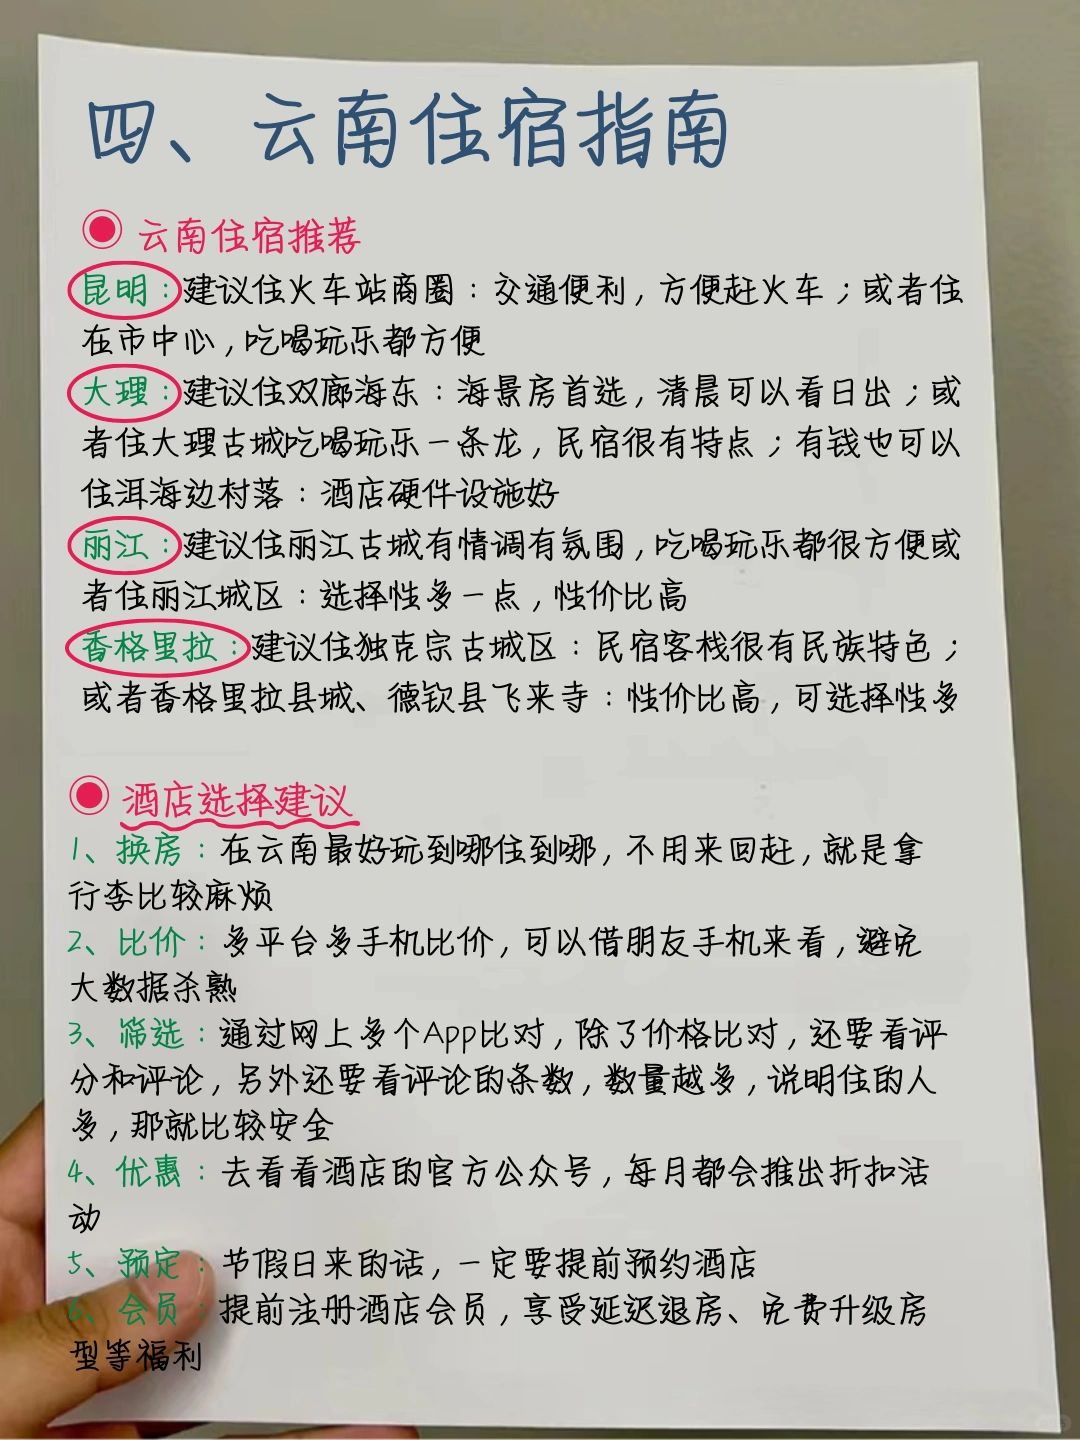 四、云南住宿指南
云南住宿推荐
昆明：建议住火车站商圈：交通便利，方便赶火车；或者住
在市中心，吃喝玩乐都方便
大理：建议住双廊海东：海景房首选，清晨可以看日出；或
者住大理古城吃喝玩乐一条龙，民宿很有特点；有钱也可以
住洱海边村落：酒店硬件设施好
丽江：建议住丽江古城有情调有氛围，吃喝玩乐都很方便或
者住丽江城区：选择性多一点，性价比高
香格里拉：建议住独克宗古城区：民宿客栈很有民族特色；
或者香格里拉县城、德钦县飞来寺：性价比高，可选择性多
酒店选择建议
1、换房：在云南最好玩到哪住到哪，不用来回赶，就是拿
行李比较麻烦
2、比价：多平台多手机比价，可以借朋友手机来看，避免
大数据杀熟
3、筛选：通过网上多个App比对，除了价格比对，还要看评
分和评论，另外还要看评论的条数，数量越多，说明住的人
多，那就比较安全
4、优惠：去看看酒店的官方公众号，每月都会推出折扣活
动
5、预定：节假日来的话，一定要提前预约酒店
6、会员：提前注册酒店会员，享受延迟退房、免费升级房
型等福利